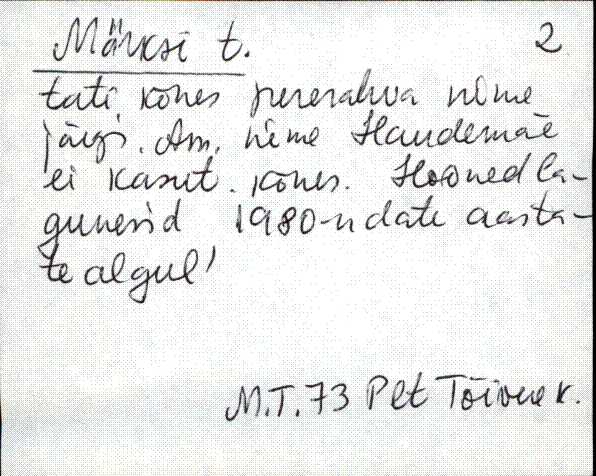 Märksi t. 2
tati kõnes pererahva nime
järgi. Am. nime Haudemäe
ei kasut. kõnes. Hooned la-
gunesid 1980-ndate aasta-
te algul'
M.T. 73 Plt Tõivere k.